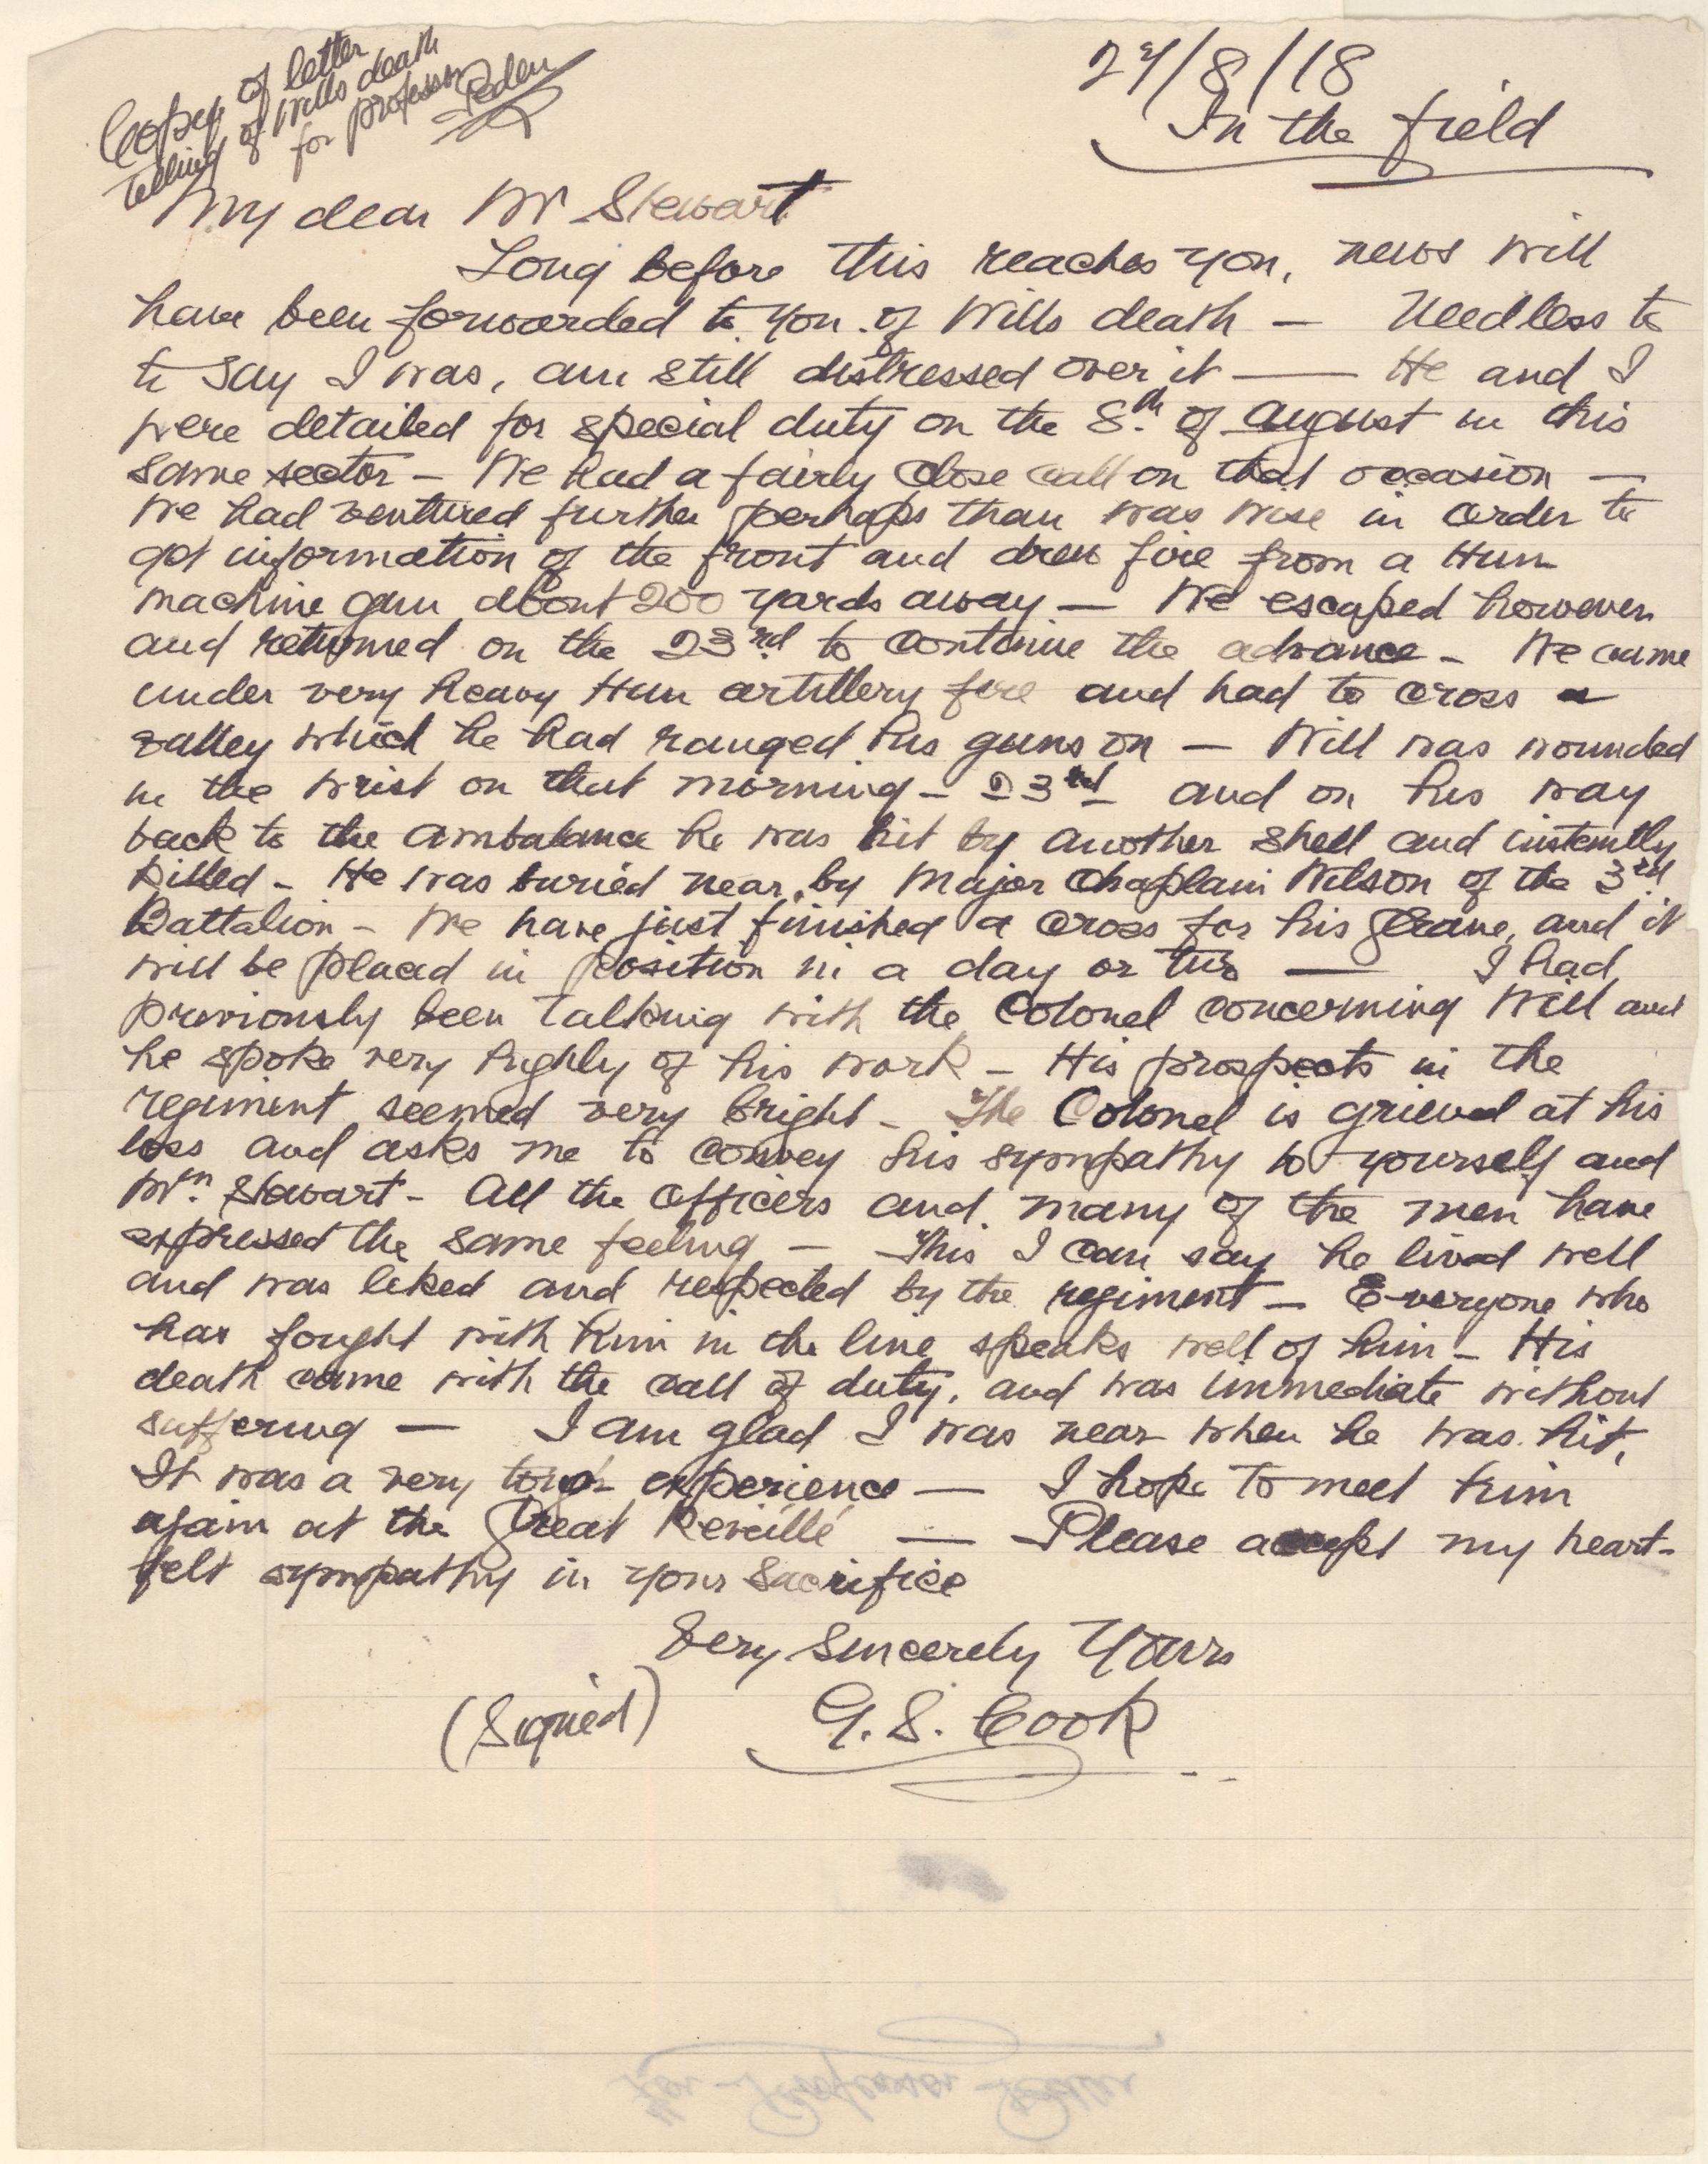 Copy of letter
telling of Wills death
for professor Peden
27/8/18
In the field
My dear Mr Stewart
Long before this reaches you, news will
have been forwarded to you of Wills death — Needless to
to say I was, am still distressed over it — He and I
were detailed for special duty on the 8th of August in this
same sector — We had a fairly close call on that occasion —
We had ventured further perhaps than was wise in order to
get information of the front and drew fire from a Hun
machine gun about 200 yards away — We escaped however
and returned on the 23rd to continue the advance — We came
under very heavy Hun artillery fire and had to cross a
valley which he had ranged his guns on — Will was wounded
in the wrist on that morning — 23rd and on his way
back to the ambulance he was hit by another shell and instantly
killed — He was buried near by Major Chaplain Wilson of the 3rd
Battalion — We have just finished a cross for his Grave, and it
will be placed in position in a day or two — I had
previously been talking with the Colonel concerning Will and
he spoke very highly of his work — His prospects in the
regiment seemed very bright — The Colonel is grieved at his
loss and asks me to convey his sympathy to yourself and
Stewart — All the Officers and many of the men have
expressed the same feeling — This I can say he lived well
and was liked and respected by the regiment — Everyone who
has fought with him in the line speaks well of him — His
death came with the call of duty, and was immediate without
suffering — I am glad I was near when he was hit,
It was a very tough experience — I hope to meet him
again at the Great Reveillé — Please accept my heart-
felt sympathy in your sacrifice
Very Sincerely Yours
(Signed) G. S. Cook
For Professor Peden